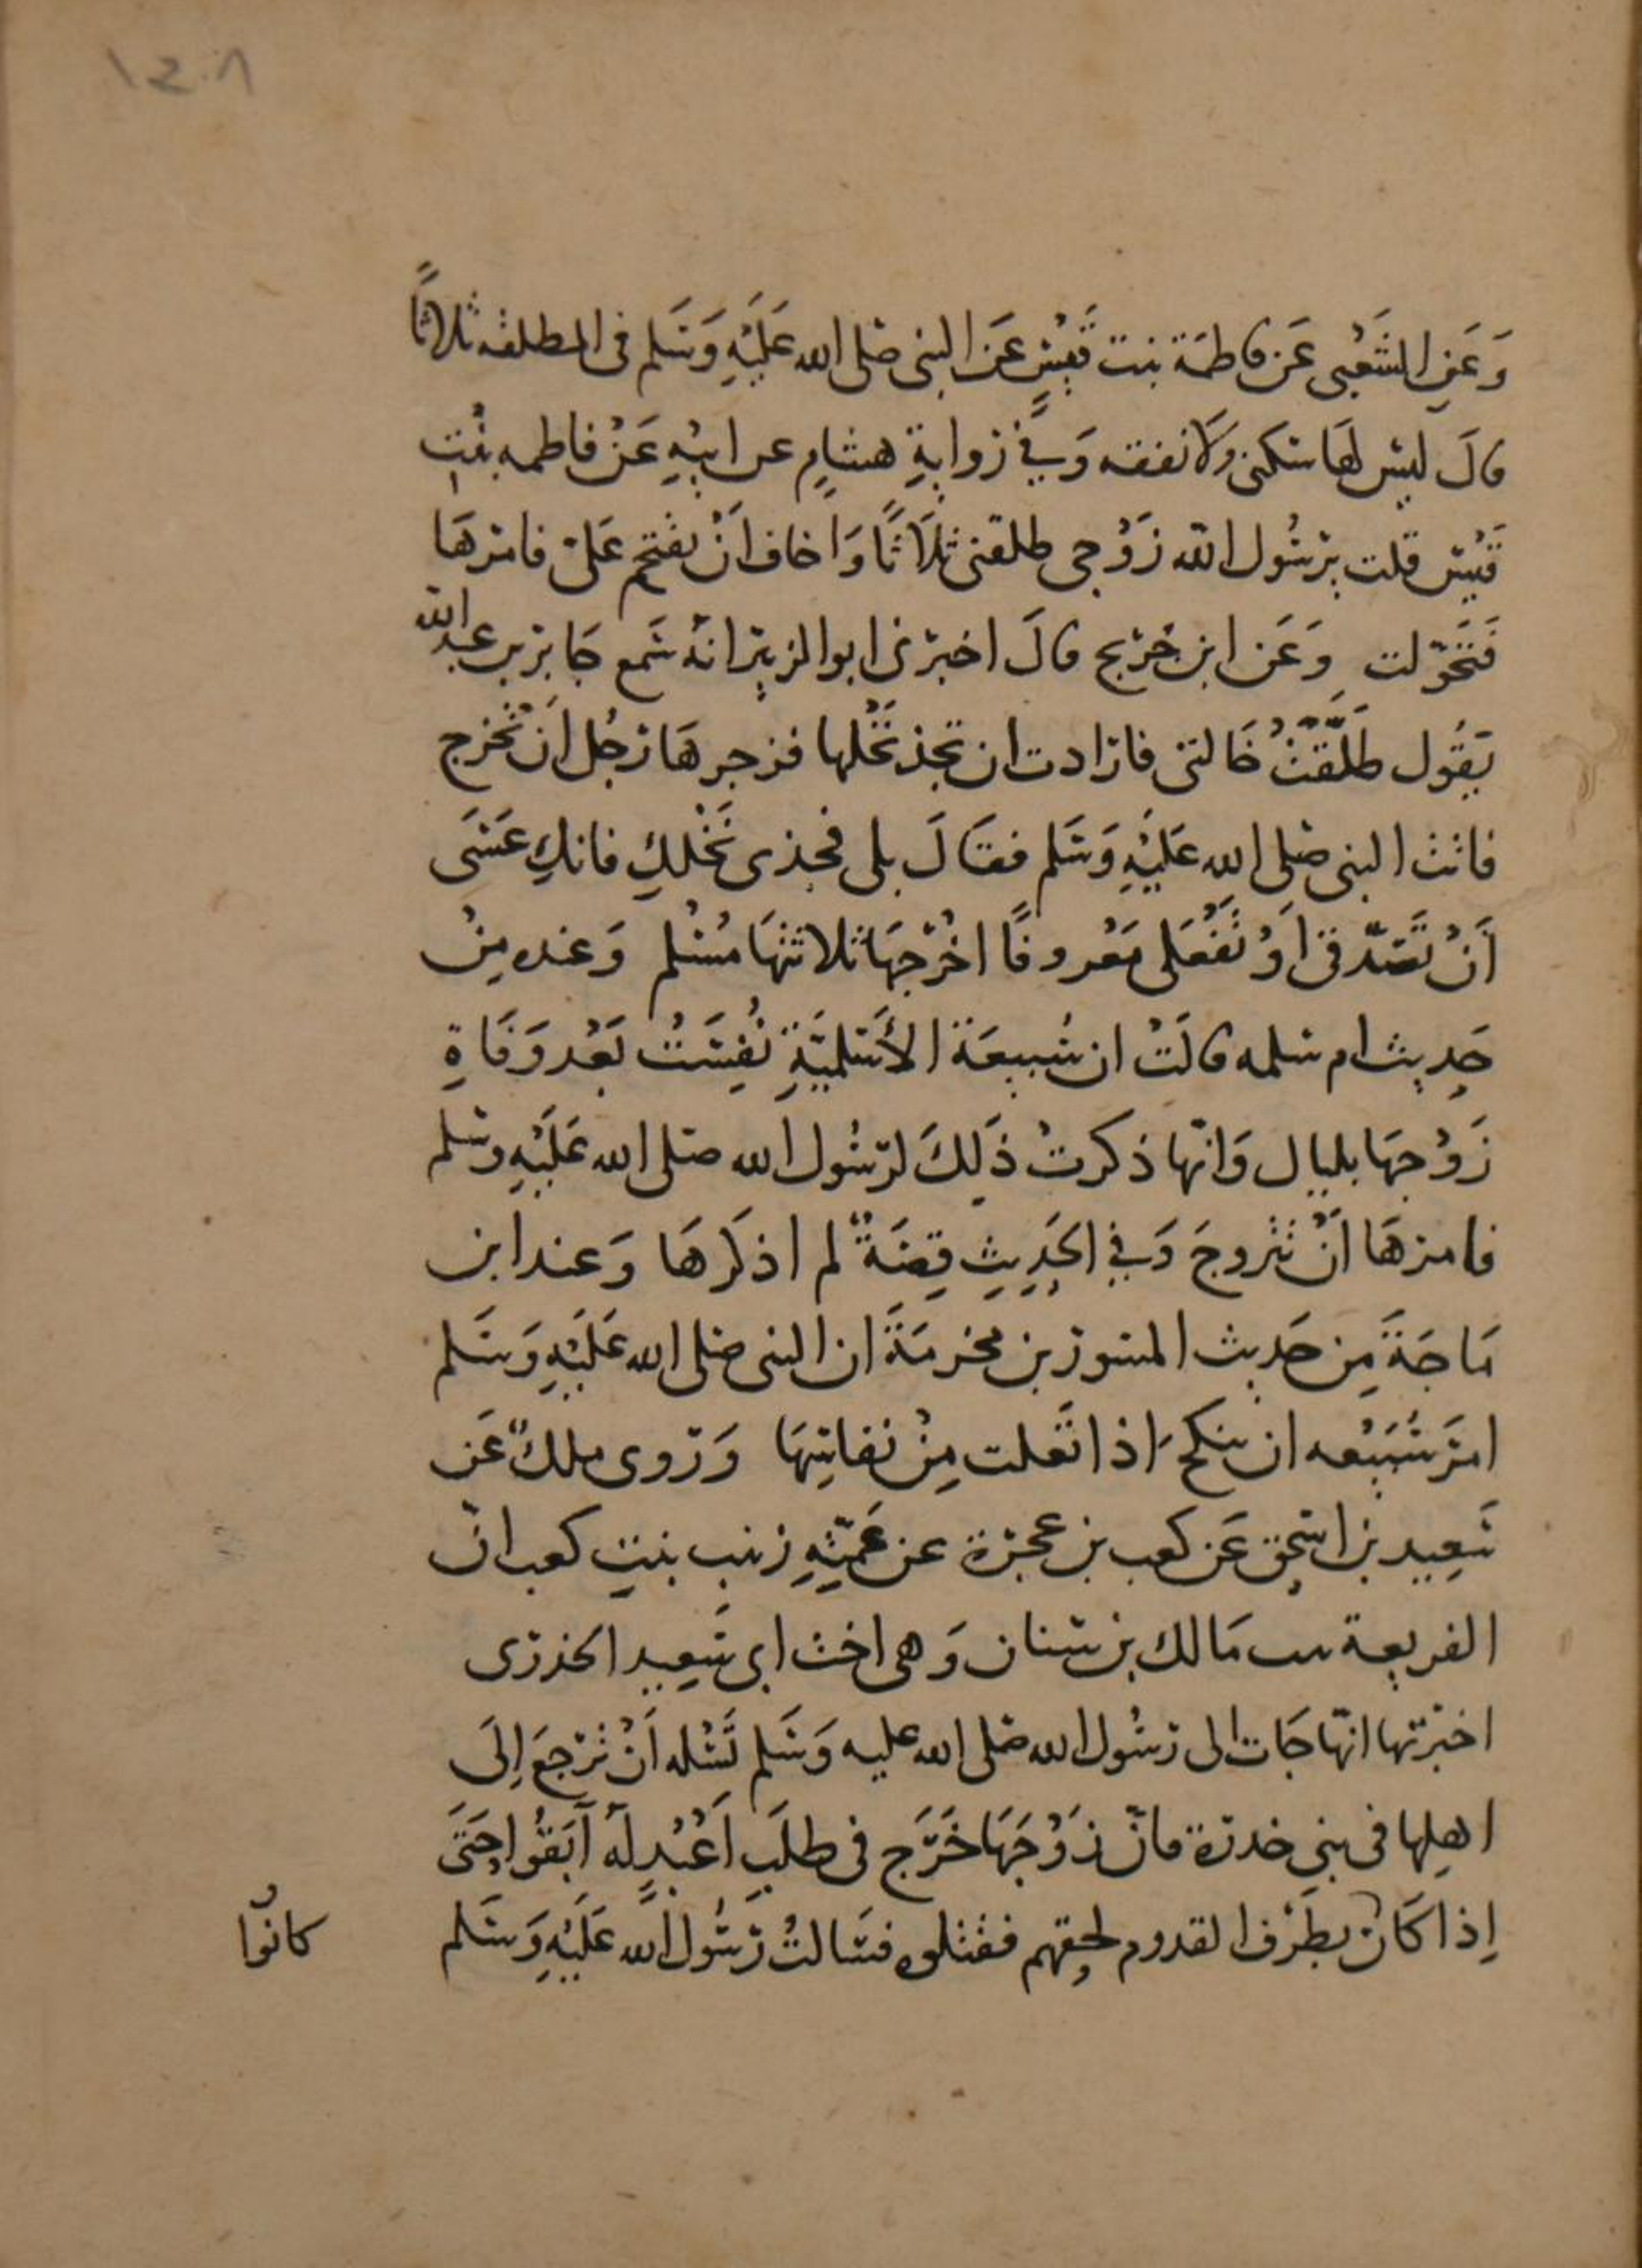 ١٤٠٨
وَعَنِ الشَّعْبِى عَن فاطمَة بنت قَيْسٍ عَن النبى صلى الله عَلَيْهِ وَسَلم فى المطلقه ثلاثًا
قالَ ليس لهَا سكنى وَلَا نفقه وَفِي رواية هشامٍ عن ابيْهِ عَنْ فاطمه بنْتِ
قَيْسٍ قلت يرسُول الله زَوْجى طلقنى ثلَاثًا وَاخاف اَنْ يقتحم عَلىّ فامرهَا
فَتَحَوّلت وَعَن ابن جُرَيج قالَ اخبرنى ابو الزبير انهُ سَمع جَابر بن عبد الله
يَقُول طَلَّقَتْ خَالتى فارادت ان تجذ نَخْلها فزجرهَا رَجُل اَنْ تخْرج
فاتت النبى صلى الله عَلَيْهِ وَسَلم فقالَ بلى فجذى نَخْلكِ فانكِ عَسَى
اَنْ تَصَدّقى اَوْ تَفْعَلى مَعْروفًا اخْرَجهَا ثلاثتهَا مُسْلم وَعنده مِنْ
حَدِيث ام سلمه قالَتْ ان سُبيعَة الأَسْلميَّةِ نُفِسَتْ بَعْد وَفَاةِ
زَوْجهَا بليال وَانّها ذكرتْ ذَلِكَ لرسُول الله صلى الله عَلَيْهِ وسلم
فامرهَا اَنْ تَتَروجَ وَفِي الحَدِيثِ قِصَةٌ لم اذكرهَا وَعند ابن
مَاجَةَ مِن حَدِيث المسور بن مخرمَةَ ان النبى صلى الله عَلَيْهِ وَسَلم
امَر سُبَيْعه ان تنكح اذا تعَلت مِنْ نفاسِهَا وَروى ملكٌ عَن
سَعِيد بن اسحٰق عَن كعب بن عجرَة عن عَمَّتِهِ زينب بنتِ كعب انّ
الفريعة بنت مَالك بن سنان وَهى اخت ابى سَعِيد الخدرى
اخبرَتها انّها جَات الى رسُول الله صلى الله عليه وَسَلم تَسْئله اَنْ تَرْجعَ اِلَى
اهلها فى بنى خدرَة فانّ زَوْجَهَا خَرَج فى طلَبِ اَعْبُدٍ لَهُ اَبَقُوا حَتَى
اِذا كَان بطَرْف القدوم لحقهم فقتلوه فسَالتْ رَسُول الله عَلَيْهِ وَسَلم
كانُوا